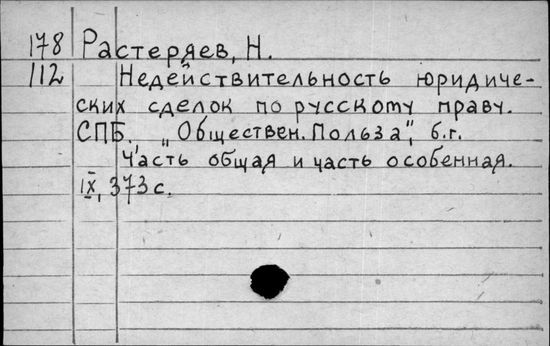 178 Растеряев, Н.
112 Недействительность юридиче-
ских сделок по русскому праву.
СПБ., „Обществен. Польза", б.г.
Часть общая и часть особенная.
IX, 373 с.